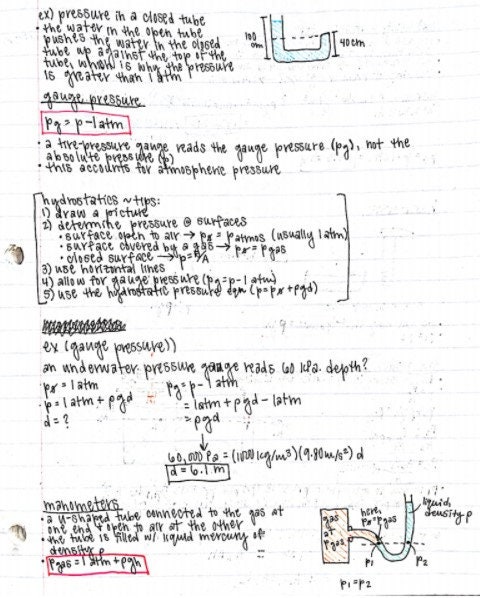 ex) pressure in a closed tube
• the water in the open tube
pushes the water in the closed
tube up against the top of the
tube, which is why the pressure
is greater than 1 atm
100
cm
40cm
gauge pressure
pg = p - 1atm
• a tire-pressure gauge reads the gauge pressure (pg), not the
absolute pressure (p)
• this accounts for atmospheric pressure
hydrostatics ~ tips:
1) draw a picture
2) determine pressure @ surfaces
• surface open to air → p₀ = patmos (usually 1atm)
• surface covered by a gas → p₀ = pgas
• closed surface → p = F/A
3) use horizontal lines
4) allow for gauge pressure (pg = p - 1 atm)
5) use the hydrostatic pressure eqn (p = p₀ + ρgd)
ex (gauge pressure))
an underwater pressure gauge reads 60 kPa. depth?
p₀ = 1atm
p = 1atm + ρgd
d = ?
pg = p - 1atm
= 1atm + ρgd - 1atm
= ρgd
60,000 Pa = (1000 kg/m³)(9.80m/s²) d
d = 6.1 m
manometers
• a u-shaped tube connected to the gas at
one end + open to air at the other
• the tube is filled w/ liquid mercury of
density ρ
• pgas = 1 atm + ρgh
gas
at
pgas
here,
p₀ = pgas
liquid,
density ρ
p₁
p₂
p₁ = p₂